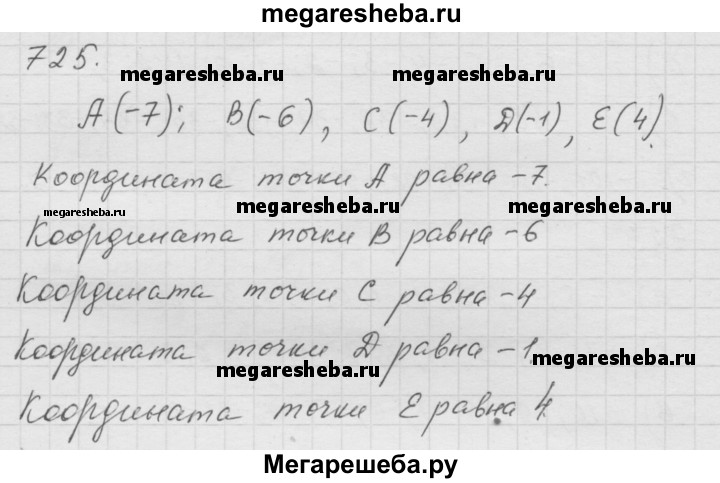 megaresheba.ru
725.
megaresheba.ru megaresheba.ru
A(-7); B(-6), C(-4), D(-1), E(4).
Координата точки A равна -7.
megaresheba.ru megaresheba.ru megaresheba.ru
Координата точки B равна -6
Координата точки C равна -4
Координата точки D равна -1.
megaresheba.ru megaresheba.ru
Координата точки E равна 4.
Мегарешеба.ру